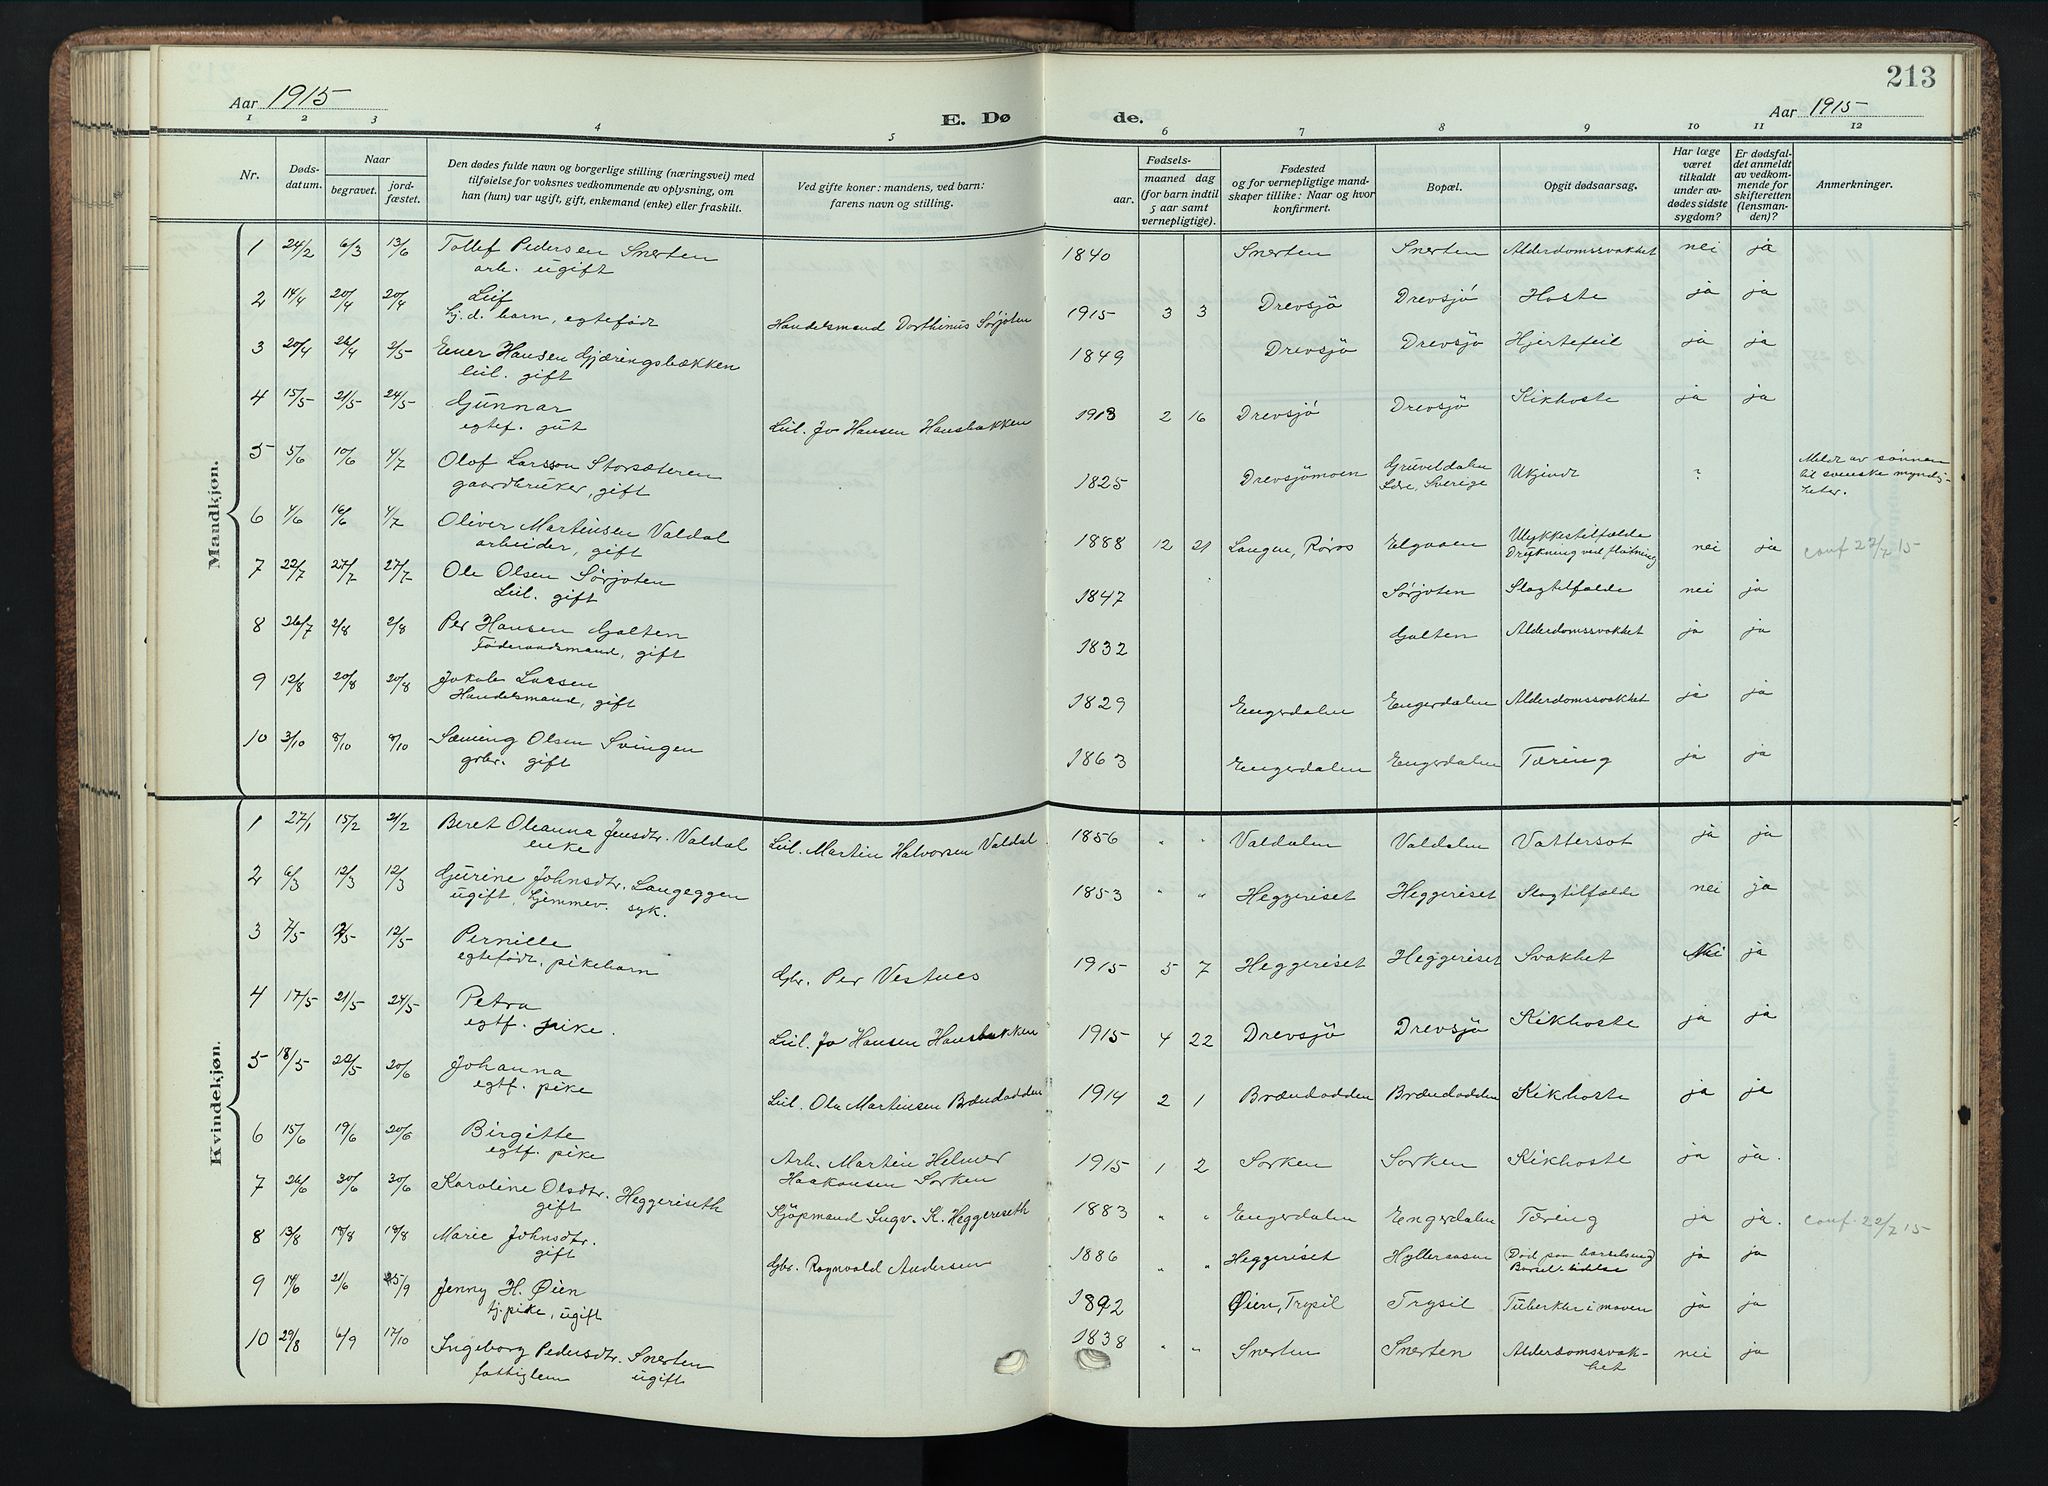 213
Aar 1915
E. Dø
de.
Aar 1915
1 2 3 4 5 6 7 8 9 10 11 12
Nr.
Døds-
datum.
Naar
begravet.
jord-
fæstet.
Den dødes fulde navn og borgerlige stilling (næringsvei) med
tilføielse for voksnes vedkommende av oplysning, om
han (hun) var ugift, gift, enkemand (enke) eller fraskilt.
Ved gifte koner: mandens, ved barn:
farens navn og stilling.
Fødsels-
aar.
maaned dag
(for barn indtil
5 aar samt
vernepligtige).
Fødested
og for vernepligtige mand-
skaper tillike: Naar og hvor
konfirmert.
Bopæl.
Opgit dødsaarsag.
Har læge
været
tilkaldt
under av-
dødes sidste
sygdom?
Er dødsfal-
det anmeldt
av vedkom-
mende for
skifteretten
(lensman-
den)?
Anmerkninger.
Mandkjøn.
1 24/2 6/3 13/6 Tollef Pedersen Snerten 1840 Snerten Snerten Alderdomssvakhet nei ja
arb. ugift
2 14/4 20/4 20/4 Leif Handelsmand Dorthinus Sørjoten 1915 3 3 Drevsjö Drevsjö Hoste ja ja
hj.d. barn, egtefødt
3 20/4 26/4 2/5 Ener Hansen Gjæringsbækken 1849 Drevsjö Drevsjö Hjertefeil ja ja
leil. gift
4 15/5 21/5 24/5 Gunnar Leil. Jo Hansen Hansbakken 1913 2 16 Drevsjö Drevsjö Kikhoste ja ja
egtef. gut
5 5/6 10/6 4/7 Olof Larsson Storsæteren 1825 Drevsjömoen Gruveldalen Ukjendt ? Meldt av sønnen
gaardbruker, gift Idre, Sverige til svenske myndig-
heter.
6 4/6 16/6 4/7 Oliver Martinsen Valdal 1888 12 21 Langen, Røros Elgaaen Ulykkestilfælde nei ja conf 22/7 15
arbeider, gift Drukning ved fløtning
7 22/7 27/7 27/7 Ole Olsen Sörjoten 1847 Sørjoten Slagtilfælde nei ja
Leil. gift
8 26/7 2/8 2/8 Per Hansen Galten 1832 Galten Alderdomssvakhet ja ja
Føderaadsmand, gift
9 12/8 20/8 20/8 Jakob Larsen 1829 Engerdalen Engerdalen Alderdomssvakhet ja ja
Handelsmand, gift
10 3/10 8/10 8/10 Sæming Olsen Svingen 1863 Engerdalen Engerdalen Tæring ja ja
grbr. gift
Kvindekjøn.
1 27/1 15/2 21/2 Beret Oleanna Jensdtr. Valdal Leil. Martin Halvorsen Valdal 1856 " " Valdalen Valdalen Vattersot ja ja
enke
2 6/3 12/3 12/3 Gurine Johnsdtr. Langeggen 1853 " " Heggeriset Heggeriset Slagtilfælde nei ja
ugift, hjemmev. syk.
3 7/5 12/5 Pernille Gbr. Per Vestnes 1915 5 7 Heggeriset Heggeriset Svakhet Nei ja
egtefødt, pikebarn
4 17/5 21/5 24/5 Petra Leil. Jo Hansen Hansbakken 1915 4 22 Drevsjö Drevsjö Kikhoste ja ja
egtf. pike.
5 18/5 22/5 20/6 Johanna Leil. Ole Martinsen Brændodden 1914 2 1 Brændodden Brændodden Kikhoste ja ja
egtf. pike
6 15/6 19/6 20/6 Birgitte Arb. Martin Helmer 1915 1 2 Sorken Sorken Kikhoste ja ja.
egtf. pike Haakonsen Sorken
7 26/6 30/6 30/6 Karoline Olsdtr. Heggeriseth Kjöpmand Ingv. K. Heggeriseth 1883 " " Engerdalen Engerdalen Tæring ja ja. conf. 22/7 15
gift
8 13/8 18/8 18/8 Marie Johnsdtr. Gbr. Ragnvald Andersen 1886 " " Heggeriset Hylleraasen Död paa barselseng ja ja
gift Barsel.lidelse
9 14/6 21/6 25/9 Jenny H. Øien 1892 Øien, Trysil Trysil Tuberkler i maven ja ja
tj.pike, ugift
10 29/8 6/9 17/10 Ingeborg Pedersdtr. Snerten 1838 " " Snerten Snerten Alderdomssvak- nei ja
fattiglem ugift het